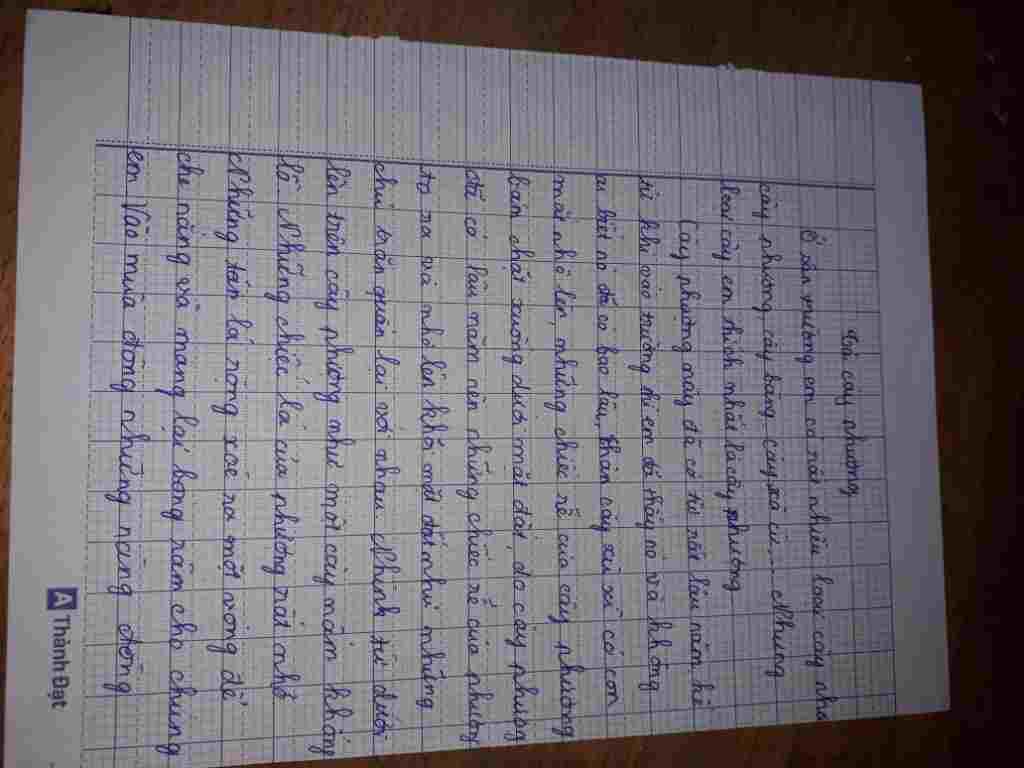 Tả cây phượng
Ở sân trường em có rất nhiều loài cây như
cây phượng cây bàng cây xà cừ.... Nhưng
loài cây em thích nhất là cây phượng
Cây phượng này đã có từ rất lâu năm kể
từ khi vào trường thì em đã thấy nó và không
ai biết nó đã có bao lâu, thân cây xù xì có con
mắt nhô lên, những chiếc rễ của cây phượng
bám chặt xuống dưới mặt đất, do cây phượng
đã có lâu năm nên những chiếc rễ của phượng
to ra và nhô lên khỏi mặt đất như những
chú trăn quấn lại với nhau Nhình từ dưới
lên trên cây phượng như một cây nấm khổng
lồ Những chiếc lá của phượng rất nhỏ
Những tán lá rộng xòe ra một vòng để
che nắng và mang lại bóng râm cho chúng
em Vào mùa đông những nàng đông
A Thành Đạt